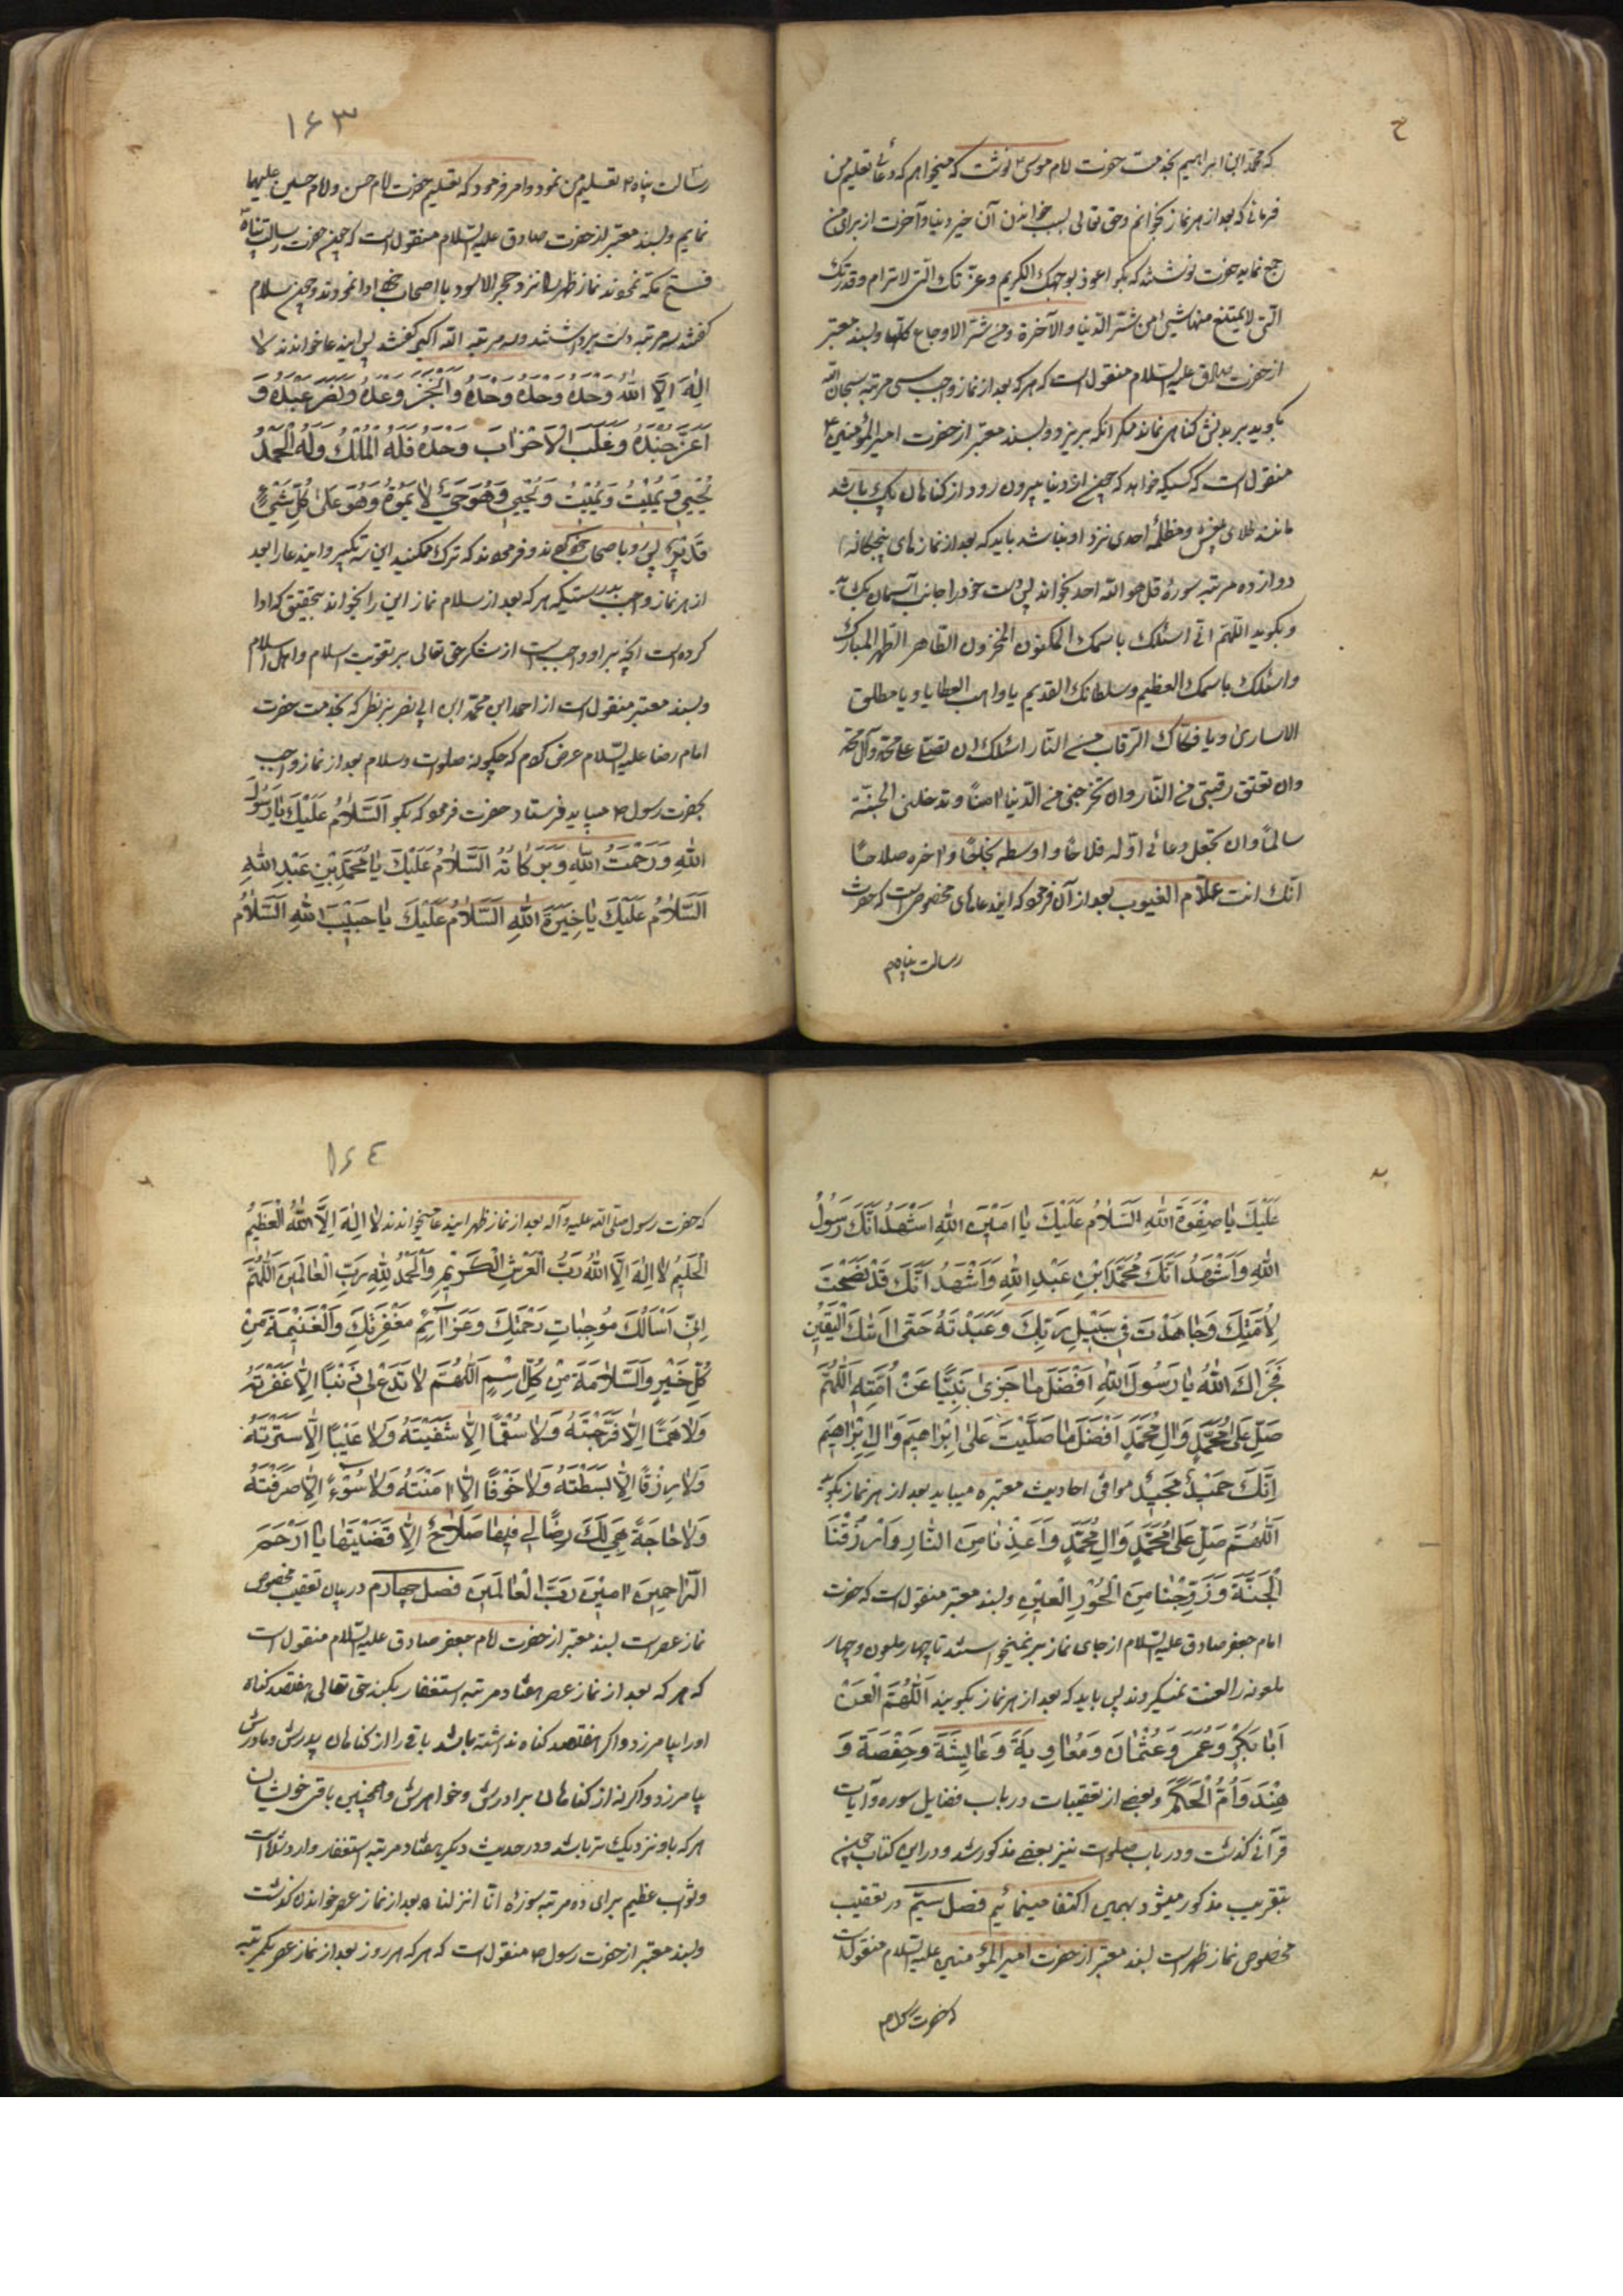 ح
که محمد ابن ابراهیم بخدمت حضرت امام موسی ۴ نوشت که میخواهم که دعائی تعلیم من
فرمائی که بعد از هر نماز بخوانم و حق تعالی بسبب خواندن آن خیر دنیا و آخرت از برای من
جمع نماید حضرت نوشتند که بگو اعوذ بوجهک الکریم و عزتک الّتی لا ترام و قدرتک
الّتی لا یمتنع منها شیئ من شرّ الدّنیا و الآخرة و من شرّ الاوجاع کلّها و بسند معتبر
از حضرت صادق علیه السّلام منقول است که هر که بعد از نماز واجب سی مرتبه سبحان الله
بگوید بر بدنش کناهی نماند مکر انکه بریزد و بسند معتبر از حضرت امیر المؤمنین ۴
منقول است که کسیکه خواهد که چون از دنیا بیرون رود از کناهان پاک باشد
مانند طلای بیغش و مظلمۀ احدی نزد او نباشد باید که بعد از نماز های پنجگانه
دوازده مرتبه سورۀ قل هو الله احد بخواند پس دست خود را جانب آسمان بگشاید
و بکوید اللّهم انّی اسئلک باسمک المکنون المخزون الطّاهر الطّهر المبارک
و اسئلک باسمک العظیم و سلطانک القدیم یا واهب العطایا و یا مطلق
الاساری و یا فکاک الرّقاب من النّار اسئلک ان تصلی علی محمّد و آل محمّد
و ان تعتق رقبتی من النّار و ان تخرجنی من الدّنیا امناً و تدخلنی الجنّة
سالماً و ان تجعل دعائی اوّله فلاحاً و اوسطه نجاحاً و اخره صلاحاً
انّک انت علّام الغیوب بعد از آن فرمود که ایندعا های مخصوص است که حضرت
رسالت پناه ۴
۱۶۳
رسالت پناه ۴ تعلیم من نمود و امر فرمود که تعلیم حضرت امام حسن و امام حسین علیهما
نمایم و بسند معتبر از حضرت صادق علیه السّلام منقول است که چون حضرت رسالت پناه
فتح مکّه نمودند نماز ظهر را نزد حجر الاسود با اصحاب خود ادا نمودند و چون سلام
کفتند سه مرتبه دست برداشتند و سه مرتبه الله اکبر کفتند پس ایندعا خواندند لا
اِلٰهَ اِلَّا اللهُ وَحْدَهُ وَحْدَهُ وَحْدَهُ وَانْجَزَ وَعْدَهُ وَنَصَرَ عَبْدَهُ وَ
اَعَزَّ جُنْدَهُ وَغَلَبَ الْاَحْزٰابَ وَحْدَهُ فَلَهُ الْمُلْكُ وَلَهُ الْحَمْدُ
یُحْیِی وَیُمِیْتُ وَیُمِیْتُ وَیُحْیِی وَهُوَ حَیٌّ لٰا یَمُوْتُ وَهُوَ عَلیٰ كُلِّ شَیْئٍ
قَدِیْرٌ پس رو باصحاب خود کردند و فرمودند که ترک مکنید این سه تکبیر و ایندعا را بعد
از هر نماز واجب بدرستیکه هر که بعد از سلام نماز این را بخواند بتحقیق که ادا
کرده است انچه بر او واجب است از شکر حق تعالی بر تقویت اسلام و اهل اسلام
و بسند معتبر منقول است از احمد ابن محمّد ابن ابی نصر بزنطی که بخدمت حضرت
امام رضا علیه السّلام عرض کردم که چکونه صلوات و سلام بعد از نماز واجب
بحضرت رسول ۴ میباید فرستاد حضرت فرمود که بکو اَلسَّلٰامُ عَلَیْكَ یٰا رَسُوْلَ
اللهِ وَرَحْمَتُ اللهِ وَبَرَكٰاتُهُ اَلسَّلٰامُ عَلَیْكَ یٰا مُحَمَّدِ بْنِ عَبْدِ اللهِ
اَلسَّلٰامُ عَلَیْكَ یٰا خِیَرَةَ اللهِ اَلسَّلٰامُ عَلَیْكَ یٰا حَبِیْبَ اللهِ اَلسَّلٰامُ
عَلَیْكَ یٰا صِفْوَةَ اللهِ اَلسَّلٰامُ عَلَیْكَ یٰا اَمِیْنَ اللهِ اَشْهَدُ اَنَّكَ رَسُوْلُ
اللهِ وَاَشْهَدُ اَنَّكَ مُحَمَّدَ ابْنِ عَبْدِ اللهِ وَاَشْهَدُ اَنَّكَ قَدْ نَصَحْتَ
لِاُمَّتِكَ وَجٰاهَدْتَ فِی سَبِیْلِ رَبِّكَ وَعَبَدْتَهُ حَتّٰی اَتٰیكَ الْیَقِیْنِ
فَجَزٰاكَ اللهُ یٰا رَسُوْلَ اللهِ اَفْضَلَ مٰا جَزیٰ نَبِیًّا عَنْ اُمَّتِهِ اَللّٰهُمَّ
صَلِّ عَلیٰ مُحَمَّدٍ وَاٰلِ مُحَمَّدٍ اَفْضَلَ مٰا صَلَّیْتَ عَلیٰ اِبْرٰاهِیْمَ وَاٰلِ اِبْرٰاهِیْمَ
اِنَّكَ حَمِیْدٌ مَجِیْدٌ موافق احادیث معتبره میباید بعد از هر نماز بکوید
اَللّٰهُمَّ صَلِّ عَلیٰ مُحَمَّدٍ وَاٰلِ مُحَمَّدٍ وَاَعِذْنٰا مِنَ النّٰارِ وَارْزُقْنَا
الْجَنَّةَ وَزَوِّجْنٰا مِنَ الْحُوْرِ الْعِیْنِ و بسند معتبر منقول است که حضرت
امام جعفر صادق علیه السّلام از جای نماز بر نمیخواستند تا چهار ملعون و چهار
ملعونه را لعنت نمیکردند پس باید که بعد از هر نماز بکویند اَللّٰهُمَّ الْعَنْ
اَبٰا بَكْرٍ وَعُمَرَ وَعُثْمٰانَ وَمُعٰاوِیَةَ وَعٰایِشَةَ وَحَفْصَةَ وَ
هِنْدَ وَاُمُّ الْحَكَمِ و بعضی از تعقیبات در باب فضایل سوره و آیات
قرآنی کذشت و در باب صلوات نیز بعضی مذکور شد و در این کتاب چون
بتقریب مذکور میشود بهمین اکتفا مینمائیم فصل سیّم در تعقیب
مخصوص نماز ظهر است بسند معتبر از حضرت امیر المؤمنین علیه السّلام منقول است
که حضرت رسول ۴
۱۶٤
که حضرت رسول صلّی الله علیه و آله بعد از نماز ظهر ایندعا میخواندند لٰا اِلٰهَ اِلَّا اللهُ الْعَظِیْمُ
الْحَلِیْمُ لٰا اِلٰهَ اِلَّا اللهُ رَبُّ الْعَرْشِ الْكَرِیْمِ وَالْحَمْدُ لِلّٰهِ رَبِّ الْعٰالَمِیْنَ اَللّٰهُمَّ
اِنِّی اَسْاَلُكَ مُوْجِبٰاتِ رَحْمَتِكَ وَعَزٰائِمَ مَغْفِرَتِكَ وَالْغَنِیْمَةَ مِنْ
كُلِّ خَیْرٍ وَالسَّلٰامَةَ مِنْ كُلِّ اِثْمٍ اَللّٰهُمَّ لٰا تَدَعْ لِی ذَنْبًا اِلّٰا غَفَرْتَهُ
وَلٰا هَمًّا اِلّٰا فَرَّجْتَهُ وَلٰا سُقْمًا اِلّٰا شَفَیْتَهُ وَلٰا عَیْبًا اِلّٰا سَتَرْتَهُ
وَلٰا رِزْقًا اِلّٰا بَسَطْتَهُ وَلٰا خَوْفًا اِلّٰا اٰمَنْتَهُ وَلٰا سُوْءً اِلّٰا صَرَفْتَهُ
وَلٰا حٰاجَةً هِیَ لَكَ رِضًا وَلِی فِیْهٰا صَلٰاحٌ اِلّٰا قَضَیْتَهٰا یٰا اَرْحَمَ
الرّٰاحِمِیْنَ اٰمِیْنَ رَبَّ الْعٰالَمِیْنَ فصل چهارم در بیان تعقیب مخصوص
نماز عصر است بسند معتبر از حضرت امام جعفر صادق علیه السّلام منقول است
که هر که بعد از نماز عصر هفتاد مرتبه استغفار بکند حق تعالی هفتصد کناه
او را بیامرزد و اکر هفتصد کناه نداشته باشد باقی را از کناهان پدرش و مادرش
بیامرزد و اکر نه از کناهان برادرش و خواهرش و همچنین باقی خویشان
هر که باو نزدیک تر باشد و در حدیث دیکر هفتاد مرتبه استغفار وارد شده است
و ثواب عظیم برای ده مرتبه سوزه انّا انزلناه بعد از نماز عصر خواندن کذشت
و بسند معتبر از حضرت رسول ۴ منقول است که هر که هر روز بعد از نماز عصر یکمرتبه